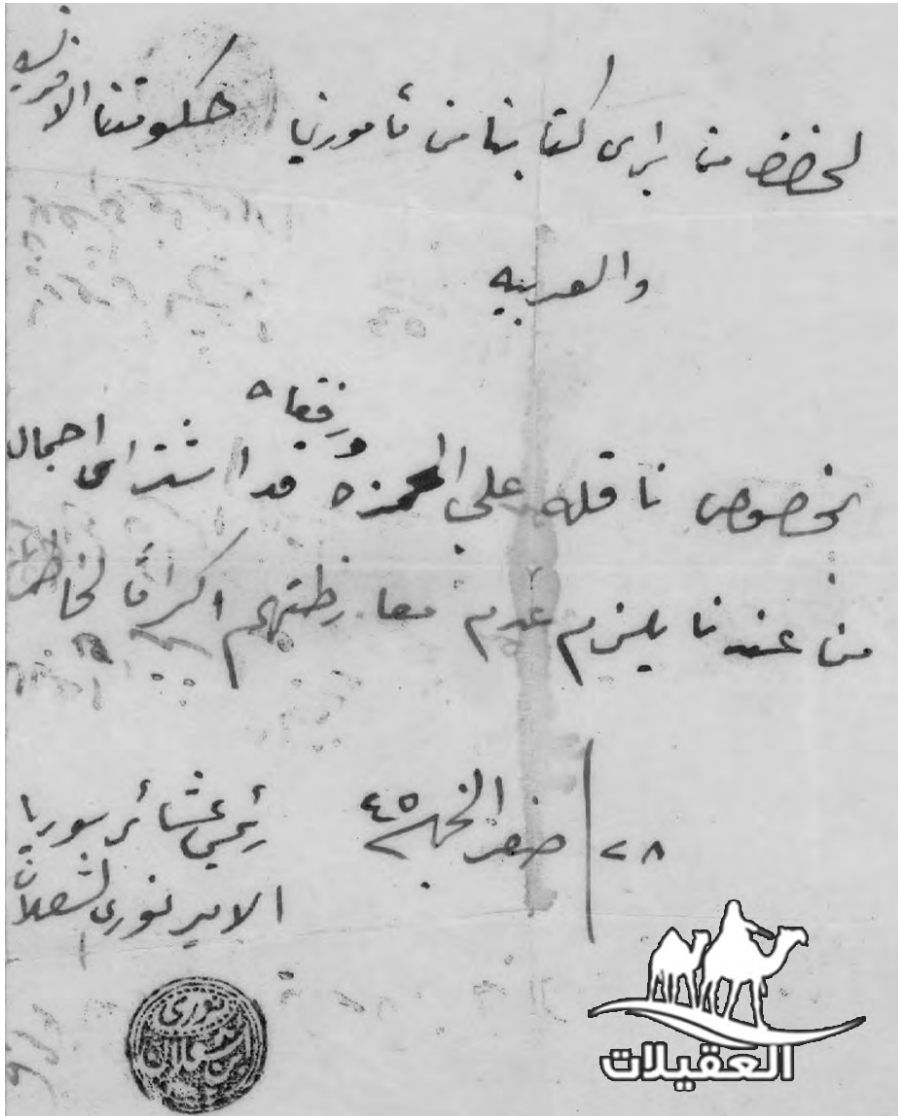 لحضض من يرى كتابنا من مأمورين حكومتنا الافرنسيه
والعربيه
ورفقاه
بخصوص ناقله علي الحمزه قد اشترى اجمال
من عندنا يلزم عدم معارظتهم اكراماً لخاطرنا
٢٨ صفر الخير ٤٥
رئيس عشائر سوريا
الامير نوري الشعلان
نوري الشعلان
العقيلات